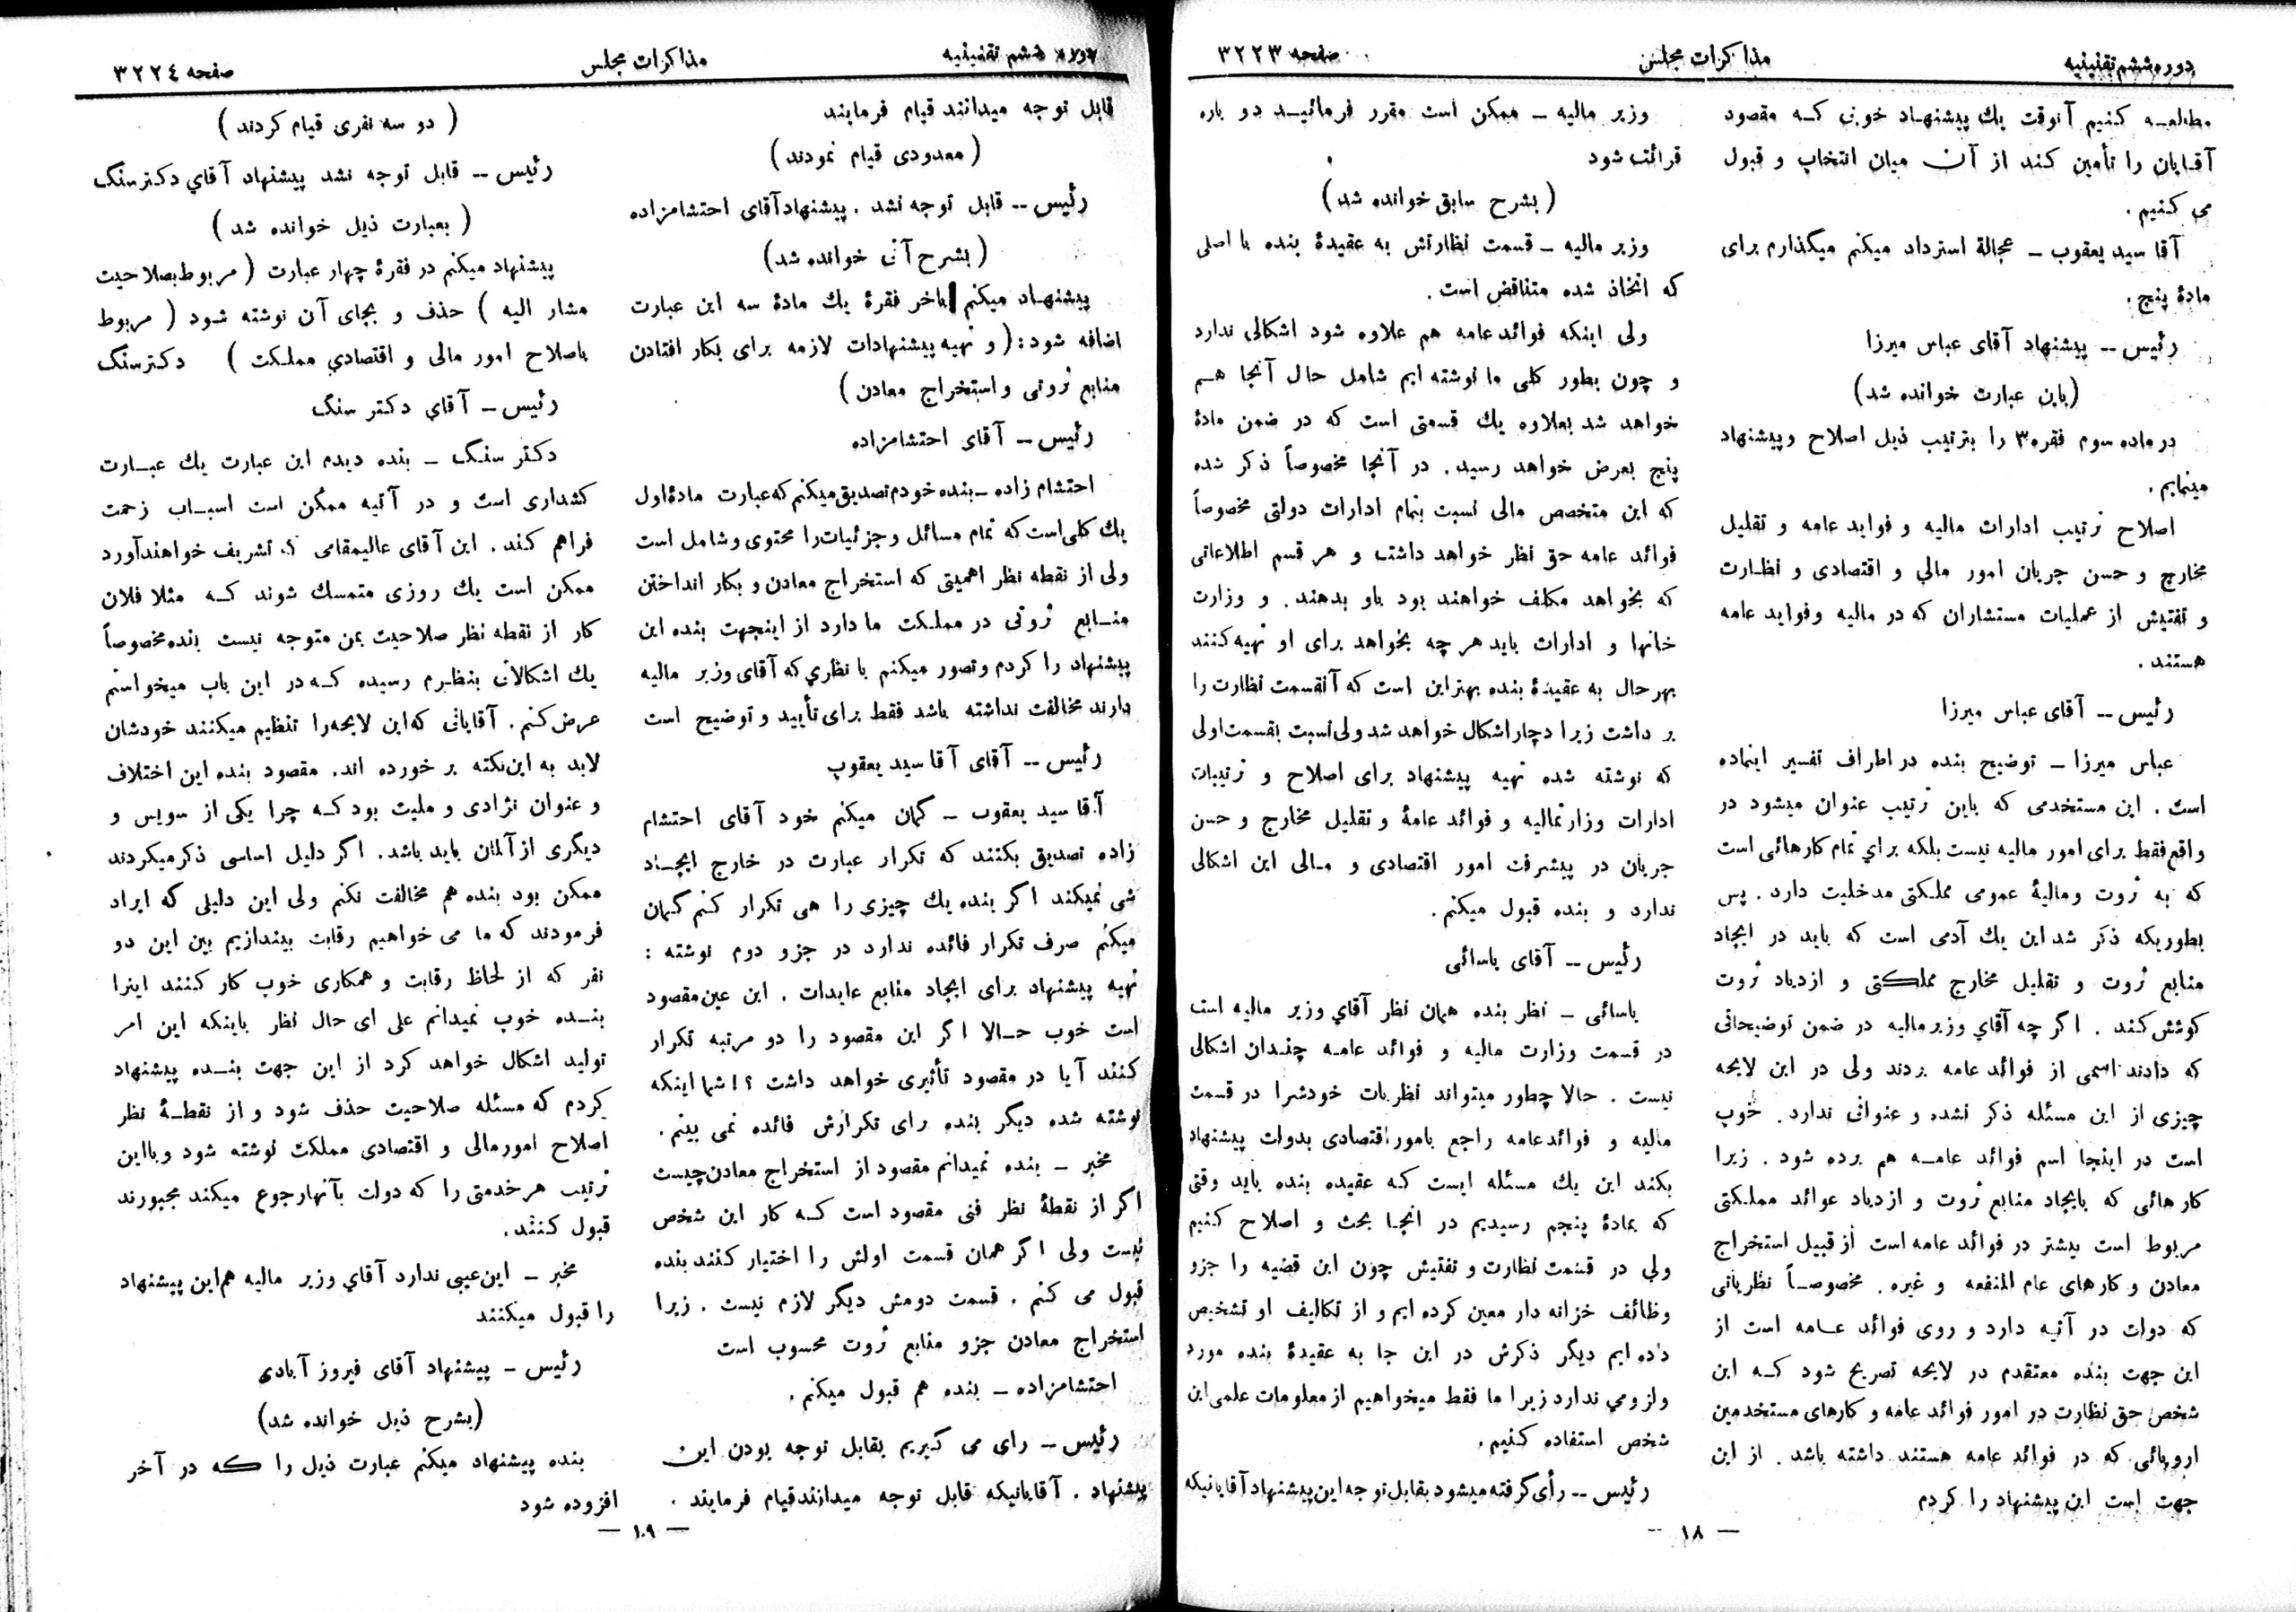 دوره ششم تقنینیه
مذاکرات مجلس
صفحه ۳۲۲۳
مطالعه کنیم آنوقت یك پیشنهاد خوبی که مقصود
آقایان را تأمین کند از آن میان انتخاب و قبول
می کنیم .
آقا سید یعقوب ــ عجالة استرداد میکنم میگذارم برای
مادۀ پنج .
رئیس ــ پیشنهاد آقای عباس میرزا
(باین عبارت خوانده شد)
در ماده سوم فقره ۳ را بترتیب ذیل اصلاح و پیشنهاد
مینمایم .
اصلاح ترتیب ادارات مالیه و فواید عامه و تقلیل
مخارج و حسن جریان امور مالی و اقتصادی و نظارت
و تفتیش از عملیات مستشاران که در مالیه و فواید عامه
هستند .
رئیس ــ آقای عباس میرزا
عباس میرزا ــ توضیح بنده در اطراف تفسیر اینماده
است . این مستخدمی که باین ترتیب عنوان میشود در
واقع فقط برای امور مالیه نیست بلکه برای تمام کارهائی است
که به ثروت و مالیۀ عمومی مملکتی مدخلیت دارد . پس
بطوریکه ذکر شد این یك آدمی است که باید در ایجاد
منابع ثروت و تقلیل مخارج مملکتی و ازدیاد ثروت
کوشش کند . اگر چه آقای وزیر مالیه در ضمن توضیحاتی
که دادند اسمی از فوائد عامه بردند ولی در این لایحه
چیزی از این مسئله ذکر نشده و عنوانی ندارد . خوب
است در اینجا اسم فوائد عامه هم برده شود . زیرا
کارهائی که بایجاد منابع ثروت و ازدیاد عوائد مملکتی
مربوط است بیشتر در فوائد عامه است از قبیل استخراج
معادن و کارهای عام المنفعه و غیره . مخصوصاً نظریاتی
که دولت در آتیه دارد و روی فوائد عامه است از
این جهت بنده معتقدم در لایحه تصریح شود که این
شخص حق نظارت در امور فوائد عامه و کارهای مستخدمین
اروپائی که در فوائد عامه هستند داشته باشد . از این
جهت است این پیشنهاد را کردم
وزیر مالیه ــ ممکن است مقرر فرمائید دو باره
قرائت شود
(بشرح سابق خوانده شد)
وزیر مالیه ــ قسمت نظارتش به عقیدۀ بنده با اصلی
که اتخاذ شده متناقض است .
ولی اینکه فوائد عامه هم علاوه شود اشکالی ندارد
و چون بطور کلی ما نوشته ایم شامل حال آنجا هم
خواهد شد بعلاوه یك قسمتی است که در ضمن مادۀ
پنج بعرض خواهد رسید . در آنجا مخصوصاً ذکر شده
که این متخصص مالی نسبت بتمام ادارات دولتی مخصوصاً
فوائد عامه حق نظر خواهد داشت و هر قسم اطلاعاتی
که بخواهد مکلف خواهند بود باو بدهند . و وزارت
خانها و ادارات باید هر چه بخواهد برای او تهیه کنند
بهر حال به عقیدۀ بنده بهتر این است که آنقسمت نظارت را
بر داشت زیرا دچار اشکال خواهد شد ولی نسبت بقسمت اولی
که نوشته شده تهیه پیشنهاد برای اصلاح و ترتیبات
ادارات وزارتمالیه و فوائد عامۀ و تقلیل مخارج و حسن
جریان در پیشرفت امور اقتصادی و مالی این اشکالی
ندارد و بنده قبول میکنم .
رئیس ــ آقای یاسائی
یاسائی ــ نظر بنده همان نظر آقای وزیر مالیه است
در قسمت وزارت مالیه و فوائد عامه چندان اشکالی
نیست . حالا چطور میتواند نظریات خودشرا در قسمت
مالیه و فوائد عامه راجع بامور اقتصادی بدولت پیشنهاد
بکند این یك مسئله ایست که عقیده بنده باید وقتی
که بمادۀ پنجم رسیدیم در انجا بحث و اصلاح کنیم
ولی در قسمت نظارت و تفتیش چون این قضیه را جزو
وظائف خزانه دار معین کرده ایم و از تکالیف او تشخیص
داده ایم دیگر ذکرش در این جا به عقیدۀ بنده مورد
و لزومی ندارد زیرا ما فقط میخواهیم از معلومات علمی این
شخص استفاده کنیم .
رئیس ــ رأی گرفته میشود بقابل توجه این پیشنهاد آقایانیکه
— ۱۸ —
دوره ششم تقنینیه
مذاکرات مجلس
صفحه ۳۲۲٤
قابل توجه میدانند قیام فرمایند
(معدودی قیام نمودند)
رئیس ــ قابل توجه نشد . پیشنهاد آقای احتشامزاده
(بشرح آتی خوانده شد)
پیشنهاد میکنم باخر فقرۀ یك مادۀ سه این عبارت
اضافه شود : ( و تهیه پیشنهادات لازمه برای بکار افتادن
منابع ثروتی و استخراج معادن )
رئیس ــ آقای احتشامزاده
احتشام زاده ــ بنده خودم تصدیق میکنم که عبارت مادۀ اول
یك کلی است که تمام مسائل و جزئیات را محتوی و شامل است
ولی از نقطه نظر اهمیتی که استخراج معادن و بکار انداختن
منابع ثروتی در مملکت ما دارد از اینجهت بنده این
پیشنهاد را کردم و تصور میکنم با نظری که آقای وزیر مالیه
دارند مخالفت نداشته باشد فقط برای تأیید و توضیح است
رئیس ــ آقای آقا سید یعقوب
آقا سید یعقوب ــ گمان میکنم خود آقای احتشام
زاده تصدیق بکنند که تکرار عبارت در خارج ایجاد
شی نمیکند اگر بنده یك چیزی را هی تکرار کنم گمان
میکنم صرف تکرار فائده ندارد در جزو دوم نوشته :
تهیه پیشنهاد برای ایجاد منابع عایدات . این عین مقصود
است خوب حالا اگر این مقصود را دو مرتبه تکرار
کنند آیا در مقصود تأثیری خواهد داشت ؟! شما اینکه
نوشته شده دیگر بنده رای تکرارش فائده نمی بینم .
مخبر ــ بنده نمیدانم مقصود از استخراج معادن چیست
اگر از نقطۀ نظر فنی مقصود است که کار این شخص
نیست ولی اگر همان قسمت اولش را اختیار کنند بنده
قبول می کنم . قسمت دومش دیگر لازم نیست . زیرا
استخراج معادن جزو منابع ثروت محسوب است
احتشامزاده ــ بنده هم قبول میکنم .
رئیس ــ رای می گیریم بقابل توجه بودن این
پیشنهاد . آقایانیکه قابل توجه میدانند قیام فرمایند .
( دو سه نفری قیام کردند )
رئیس ــ قابل توجه نشد پیشنهاد آقای دکتر سنگ
( بعبارت ذیل خوانده شد )
پیشنهاد میکنم در فقرۀ چهار عبارت ( مربوط بصلاحیت
مشار الیه ) حذف و بجای آن نوشته شود ( مربوط
باصلاح امور مالی و اقتصادی مملکت ) دکتر سنگ
رئیس ــ آقای دکتر سنگ
دکتر سنگ ــ بنده دیدم این عبارت یك عبارت
کشداری است و در آتیه ممکن است اسباب زحمت
فراهم کند . این آقای عالیمقامی که تشریف خواهند آورد
ممکن است یك روزی متمسك شوند که مثلا فلان
کار از نقطه نظر صلاحیت بمن متوجه نیست بنده مخصوصاً
یك اشکالاتی بنظرم رسیده که در این باب میخواستم
عرض کنم . آقایانی که این لایحه را تنظیم میکنند خودشان
لابد به این نکته بر خورده اند . مقصود بنده این اختلاف
و عنوان نژادی و ملیت بود که چرا یکی از سویس و
دیگری از آلمان باید باشد . اگر دلیل اساسی ذکر میکردند
ممکن بود بنده هم مخالفت نکنم ولی این دلیلی که ایراد
فرمودند که ما می خواهیم رقابت بیندازیم بین این دو
نفر که از لحاظ رقابت و همکاری خوب کار کنند اینرا
بنده خوب نمیدانم علی ای حال نظر باینکه این امر
تولید اشکال خواهد کرد از این جهت بنده پیشنهاد
کردم که مسئله صلاحیت حذف شود و از نقطۀ نظر
اصلاح امور مالی و اقتصادی مملکت نوشته شود و با این
ترتیب هر خدمتی را که دولت بآنها رجوع میکند مجبورند
قبول کنند .
مخبر ــ این عیبی ندارد آقای وزیر مالیه هم این پیشنهاد
را قبول میکنند
رئیس ــ پیشنهاد آقای فیروز آبادی
(بشرح ذیل خوانده شد)
بنده پیشنهاد میکنم عبارت ذیل را که در آخر
افزوده شود
— ۱۰۹ —